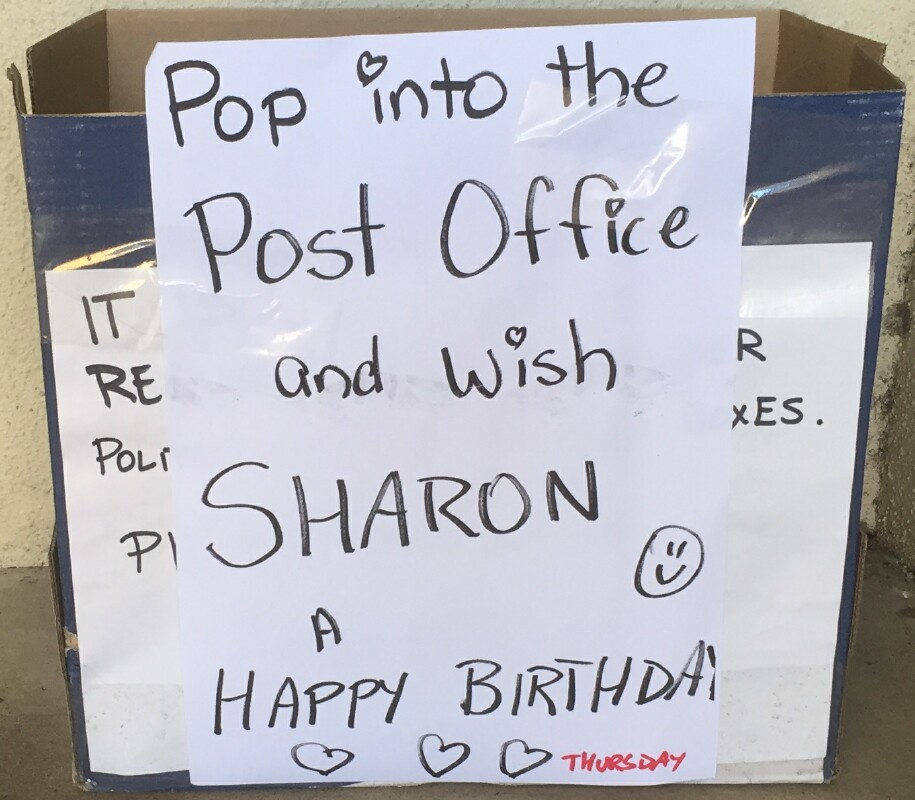 Pop into the
Post Office
and wish
SHARON
A
HAPPY BIRTHDAY
THURSDAY
IT
RE
R
XES.